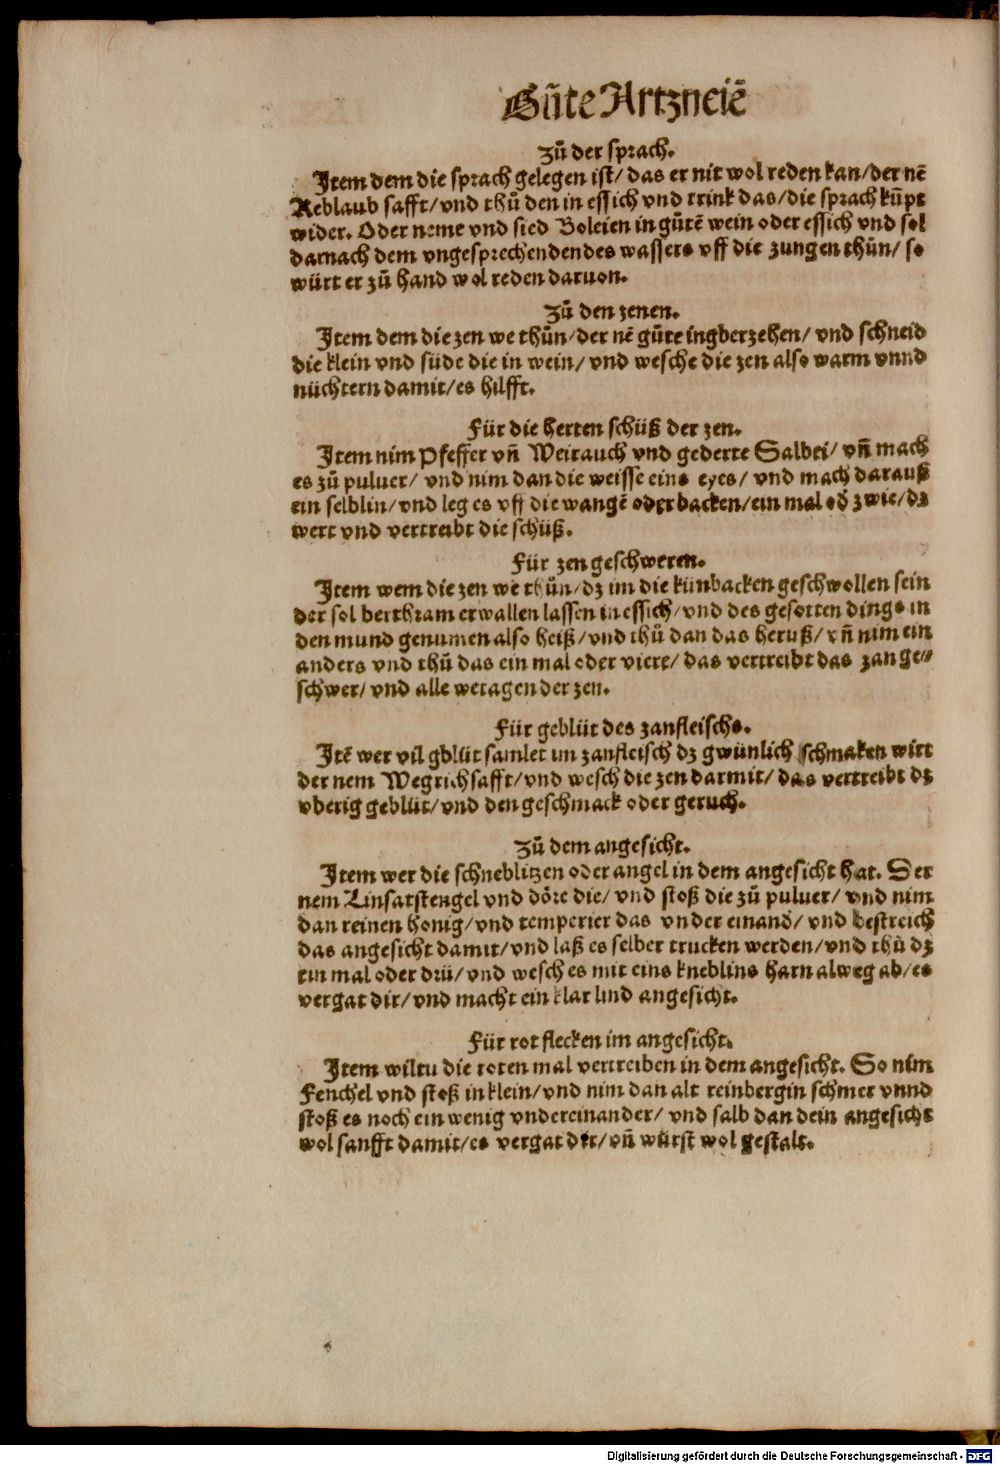 Gůte Artzneiẽ
Zů der sprach.
Item dem die sprach gelegen ist/ das er nit wol reden kan/der nẽ
Reblaub safft/vnd thů den in essich vnd trink das/die sprach kũpt
wider. Oder neme vnd sied Boleien in gůtẽ wein oder essich vnd sol
darnach dem vngesprechenden des wassers vff die zungen thůn/ so
würt er zů hand wol reden daruon.
Zů den zenen.
Item dem die zen we thůn/der nẽ gůte ingberzehen/ vnd schneid
die klein vnd süde die in wein/ vnd wesche die zen also warm vnnd
nüchtern damit/es hilfft.
Für die herten schüß der zen.
Item nim Pfeffer vñ Weirauch vnd gederte Salbei/ vñ mach
es zů puluer/ vnd nim dan die weisse eins eyes/ vnd mach darauß
ein selblin/vnd leg es vff die wangẽ oder backen/ein mal oď zwie/dz
wert vnd vertreibt die schüß.
Für zen geschweren.
Item wem die zen we thůn/dz im die künbacken geschwollen sein
der sol berthram erwallen lassen in essich/vnd des gesotten dings in
den mund genumen also heiß/vnd thů dan das heruß/ vñ nim ein
anders vnd thů das ein mal oder viere/ das vertreibt das zan ge⸗
schwer/ vnd alle wetagen der zen.
Für geblüt des zanfleischs.
Itẽ wer vil gblüt samlet im zanfleisch dz gwünlich schmaken wirt
der nem Wegrichsafft/vnd wesch die zen darmit/ das vertreibt dz
vberig geblüt/vnd den geschmack oder geruch.
Zů dem angesicht.
Item wer die schneblitzen oder angel in dem angesicht hat. Der
nem Linsatstengel vnd döre die/ vnd stoß die zů puluer/ vnd nim
dan reinen honig/vnd temperier das vnder einand/ vnd bestreich
das angesicht damit/vnd laß es selber trucken werden/vnd thů dz
ein mal oder drü/ vnd wesch es mit eins kneblins harn alweg ab/es
vergat dir/vnd macht ein klar lind angesicht.
Für rot flecken im angesicht.
Item wiltu die roten mal vertreiben in dem angesicht. So nim
Fenchel vnd stoß in klein/vnd nim dan alt reinbergin schmer vnnd
stoß es noch ein wenig vndereinander/ vnd salb dan dein angesicht
wol sanfft damit/es vergat dir/vñ würst wol gestalt.
Digitalisierung gefördert durch die Deutsche Forschungsgemeinschaft - DFG